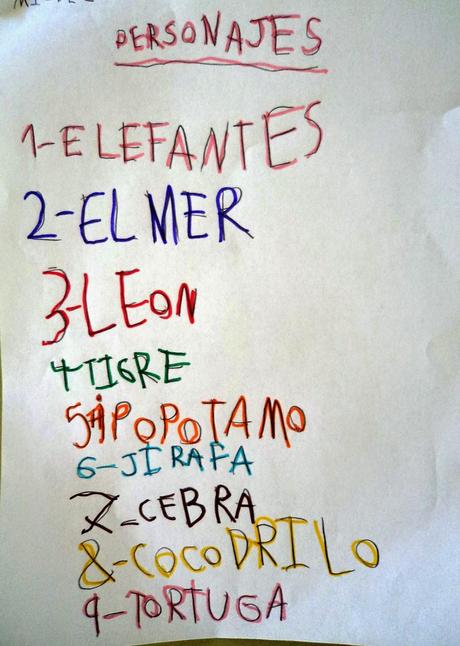 PERSONAJES
1-ELEFANTES
2-ELMER
3-LEON
4-TIGRE
5-IPOPOTAMO
6-JIRAFA
7-CEBRA
8-COCODRILO
9-TORTUGA